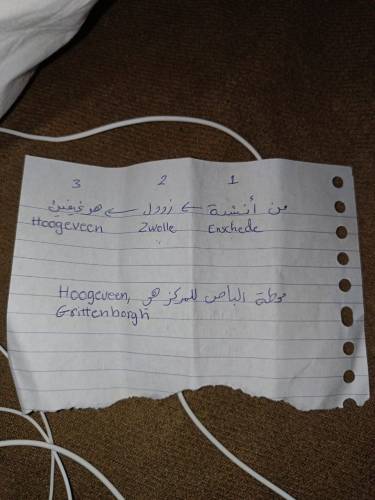 1 2 3
من أنشدة ← زوول ← هوغيفين
Enschede Zwolle Hoogeveen
محطة الباص للمركز هي Hoogeveen,
Grittenborgh